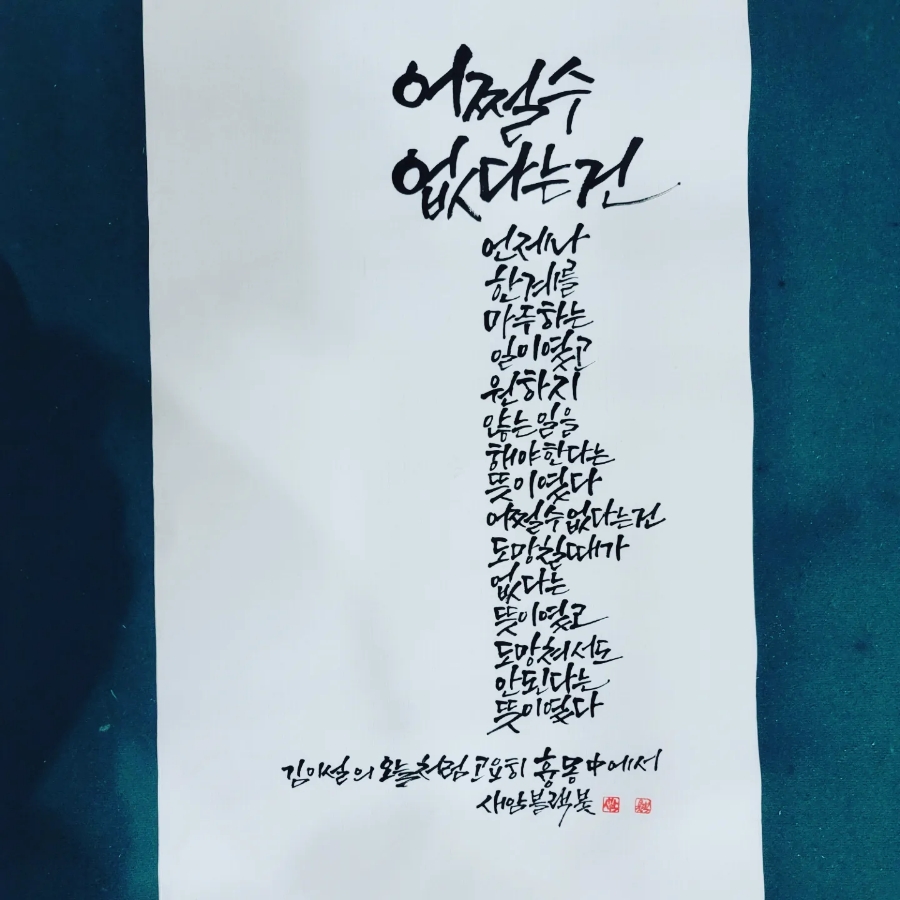 어쩔수
없다는건
언제나
한계를
마주하는
일이였고
원하지
않는일을
해야한다는
뜻이였다
어쩔수없다는건
도망칠때가
없다는
뜻이였고
도망쳐서도
안된다는
뜻이였다
김이설의 오늘처럼고요히 흉몽中에서
새암블랙붓